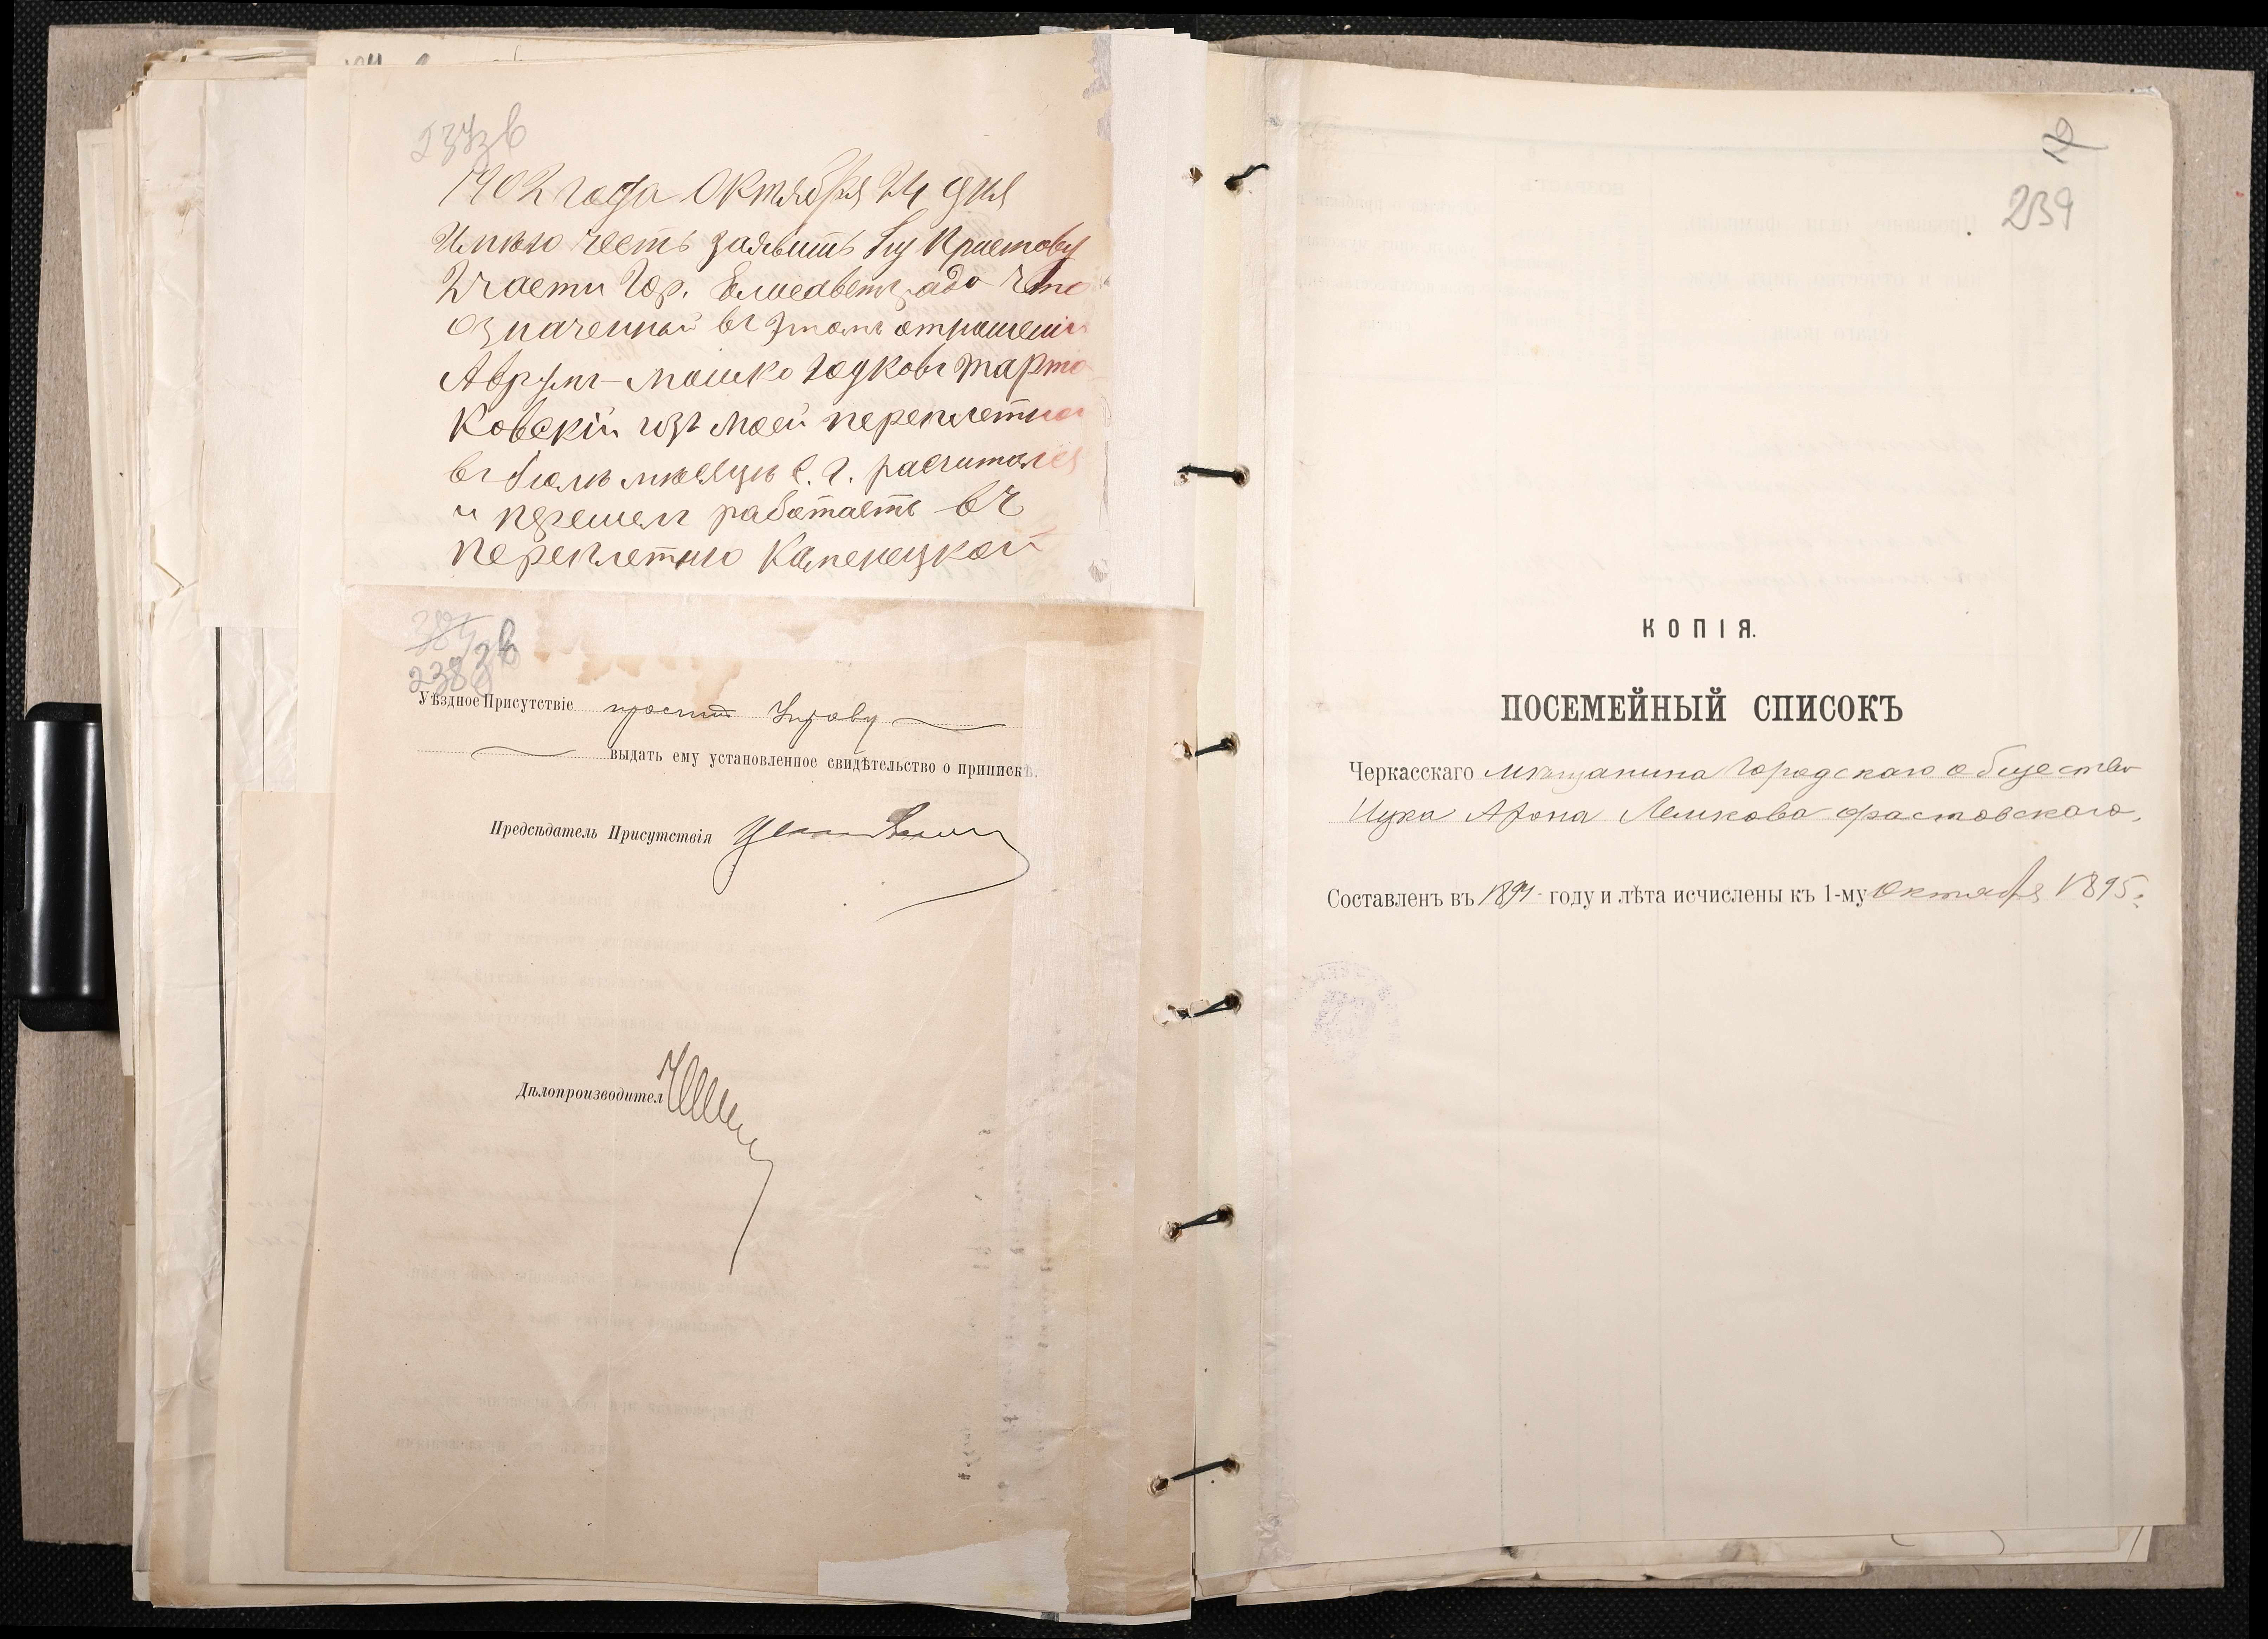 237зв
1902 года Октября 24 дня
Имѣю честь заявить Гну Приставу
2 части Гор. Елисаветграда что
означенный въ этомъ отношеніи
Аврумъ-Мошко Юдковъ Тарта
ковскій изъ моей переплетной
въ Іюлѣ мѣсяцѣ с. г. расчитался
и перешелъ работаетъ въ
переплетню Каменецкой
238зв
Уѣздное Присутствіе проситъ Управу
выдать ему установленное свидѣтельство о припискѣ.
Предсѣдатель Присутствія
Дѣлопроизводител
239
КОПІЯ.
ПОСЕМЕЙНЫЙ СПИСОКЪ
Черкасскаго мѣщанина городскаго общества
Ицка Арона Лейкова Фастовскаго.
Составленъ въ 1894 году и лѣта исчислены къ 1-му Октября 1895 г.